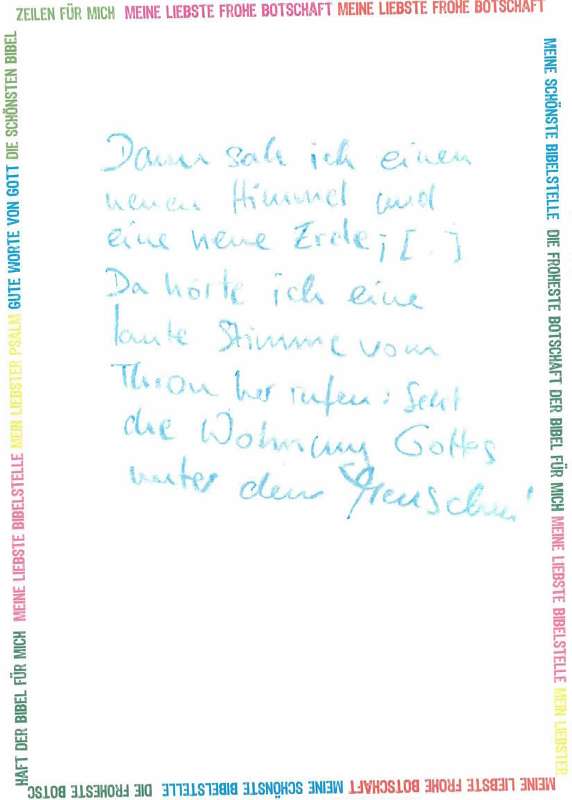 ZEILEN FÜR MICH MEINE LIEBSTE FROHE BOTSCHAFT MEINE LIEBSTE FROHE BOTSCHAFT
MEINE SCHÖNSTE BIBELSTELLE DIE FROHESTE BOTSCHAFT DER BIBEL FÜR MICH MEINE LIEBSTE BIBELSTELLE MEIN LIEBSTER
Dann sah ich einen
neuen Himmel und
eine neue Erde; [..]
Da hörte ich eine
laute Stimme vom
Thron her rufen: Seht
die Wohnung Gottes
unter den Menschen!
MEINE LIEBSTE FROHE BOTSCHAFT MEINE SCHÖNSTE BIBELSTELLE DIE FROHESTE BOTSC
HAFT DER BIBEL FÜR MICH MEINE LIEBSTE BIBELSTELLE MEIN LIEBSTER PSALM GUTE WORTE VON GOTT DIE SCHÖNSTEN BIBEL